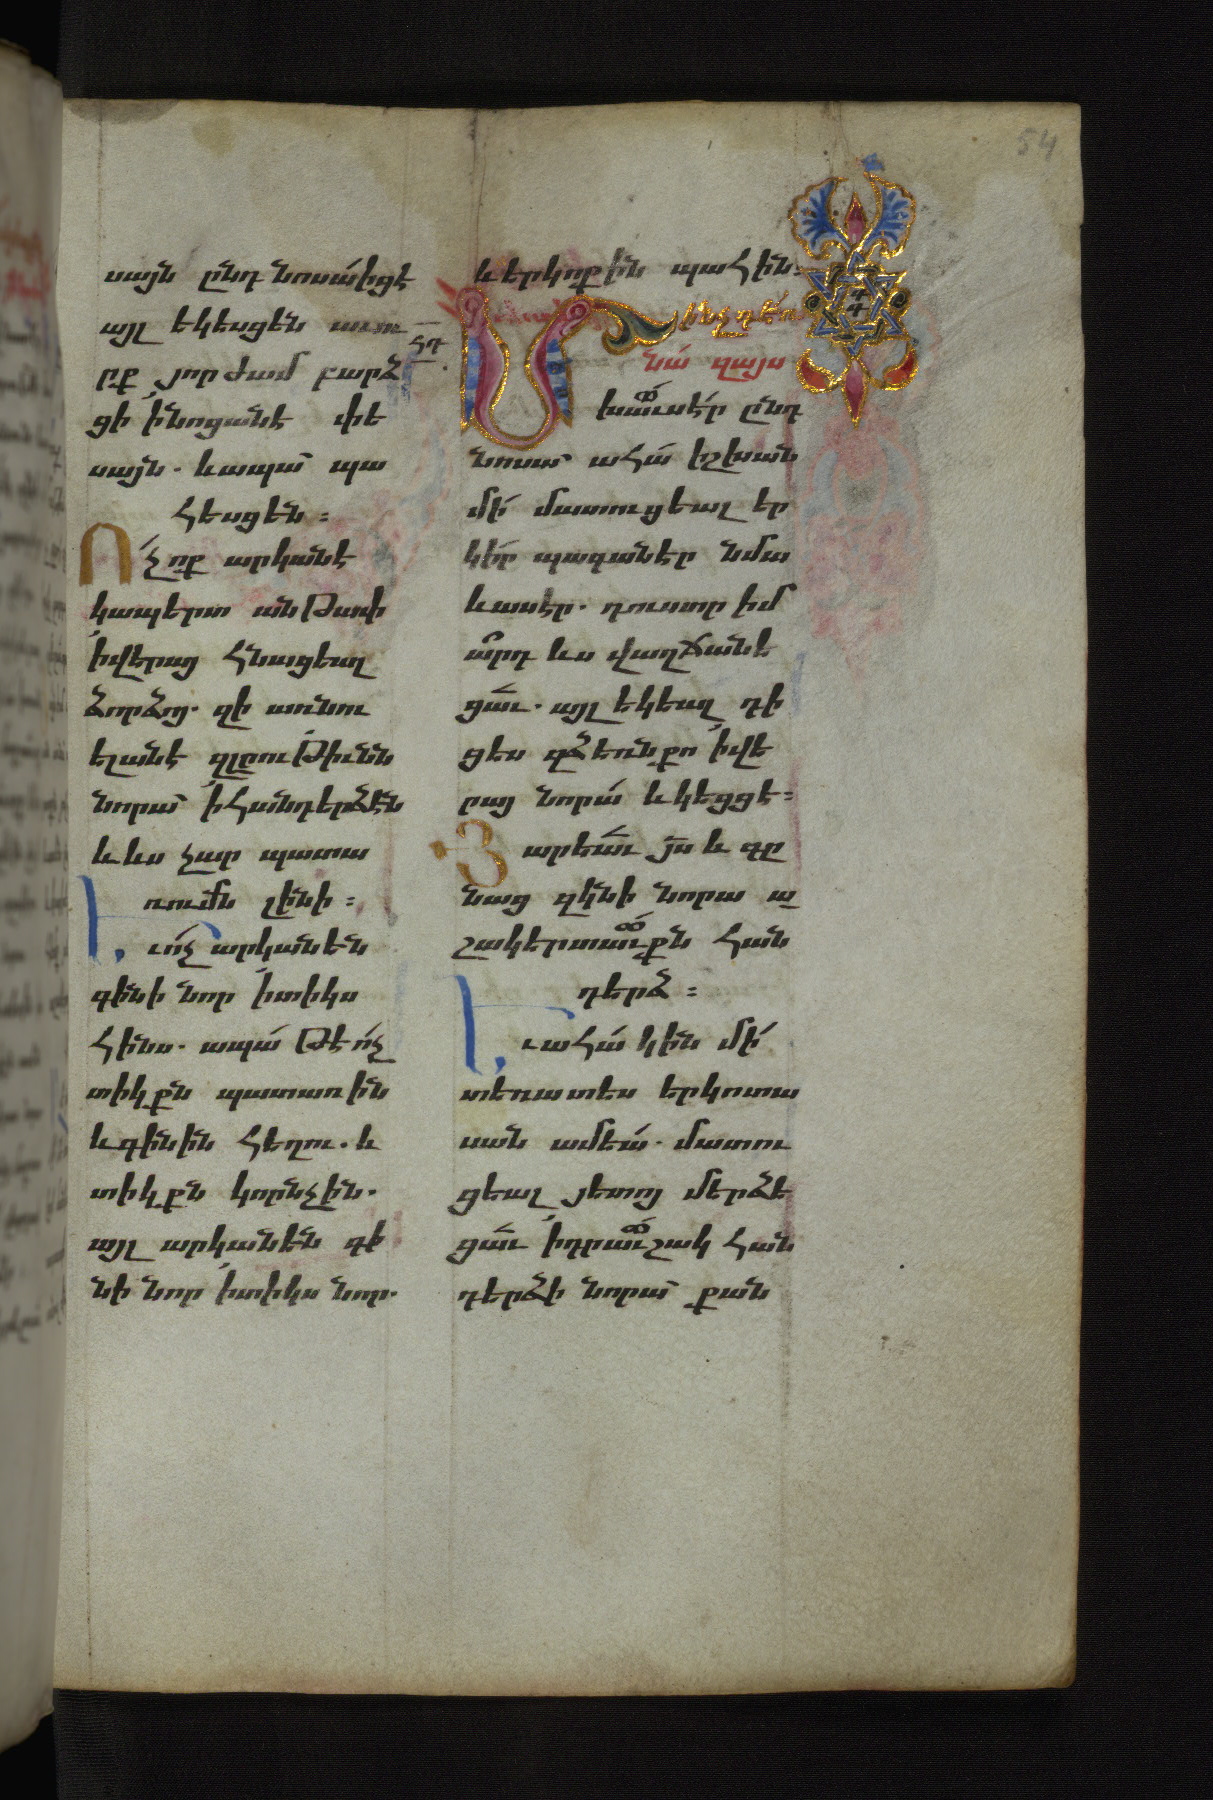 54
սայն ընդ նոսա՛ իցէ
այլ եկեսցեն աւու
րք յորժամ բարձ
ցի ՛ի նոցանէ փե
սայն. և ապա՛ պա
հեսցեն։
Ո՛չ ոք արկանէ
կապերտ անթափ
՛ի վերայ հնացեալ
ձորձոյ. զի առնու
ելանէ զլրութիւնն
նորա՛ ՛ի հանդերձէն
և ևս չար պատա
ռումն լինի։
Եւ ո՛չ արկանեն
գինի նոր ՛ի տիկս
հինս. ապա՛ թէ ո՛չ
տիկքն պատառին
և գինին հեղու. և
տիկքն կորնչին.
այլ արկանեն գի
նի նոր ՛ի տիկս նոր.
հդ
և երկոքին պահին։
Մինչդեռ
նա՛ զայս
խաւսէր ընդ
նոսա՛ ահա՛ իշխան
մի՛ մատուցեալ եր
կիր պագանէր նմա
և ասէր. դուստր իմ
արդ ևս վաղճանե
ցաւ. այլ եկեալ դի
ցես զձեռն քո ՛ի վե
րայ նորա՛ և կեցցէ։
Յարեաւ յս և գը
նաց զկնի նորա ա
շակերտաւքն հան
դերձ։
Եւ ահա՛ կին մի՛
տեռատես երկոտա
սան ամեա՛. մատու
ցեալ յետոյ մերձե
ցաւ ՛ի դրաւշակ հան
դերձի նորա՛ քան